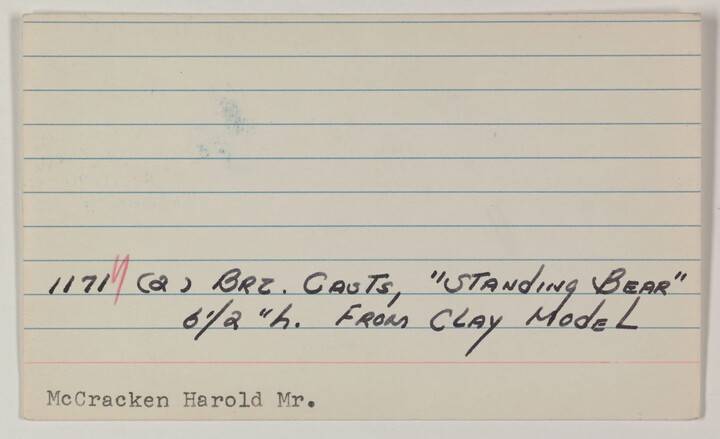 1171 (2) BRZ. CASTS, "STANDING BEAR"
6 1/2 "h. FROM CLAY MODEL
McCracken Harold Mr.